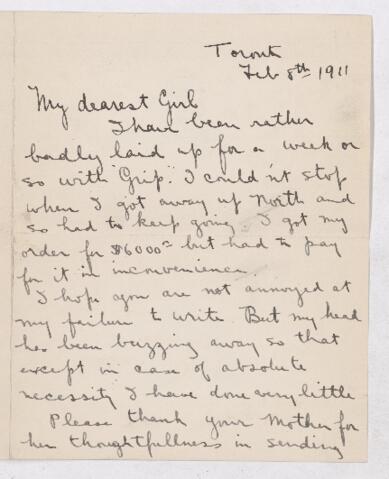 Toronto
Feb 8th 1911
My dearest Girl
I have been rather
badly laid up for a week or
so with "Grip." I could'nt stop
when I got away up North and
so had to keep going. I got my
order for $6000 but had to pay
for it in inconvenience.
I hope you are not annoyed at
my failure to write. But my head
has been buzzing away so that
except in case of absolute
necessity I have done very little
Please thank your Mother for
her thoughtfullness in sending